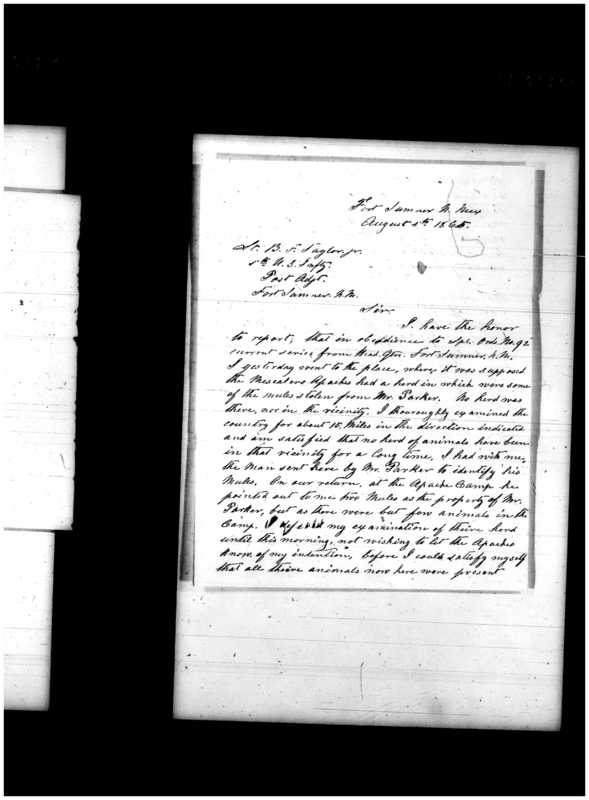 Fort Sumner N. Mex
August 5th 1865.
Lt. B. F. Taylor jr.
5th U. S. Infty.
Post Adjt.
Fort Sumner N.M.
Sir
I have the honor
to report, that in obedience to Spl. Ords. No. 92
current series from Head Qrs. Fort Sumner, N.M.
I yesterday went to the place, where it was supposed
the Mescalero Apaches had a herd in which were some
of the mules stolen from Mr. Parker. No herd was
there, nor in the vicinity. I thouroughly examined the
country for about 15 Miles in the direction indicated
and am satisfied that no herd of animals have been
in that vicinity for a long time. I had with me,
the man sent here by Mr. Parker to identify his
Mules. On our return, at the Apache Camp he
pointed out to me two Mules as the property of Mr.
Parker, but as there were but few animals in the
Camp. I my examination of theire herd
until this morning, not wishing to let the Apaches
know of my intention, before I could satisfy myself
that all theire animals now here were present